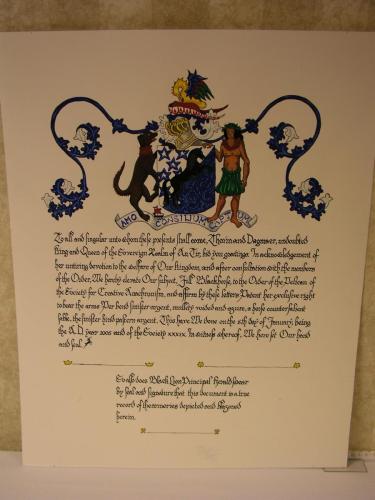 AMO CONSILIUM OPTIMUM
To all and singular unto whom these presents shall come, Thorin and Dagmaer, undoubted
King and Queen of the Sovereign Realm of An Tir, bid you greetings. In acknowledgement of
her untiring devotion to the welfare of Our Kingdom, and after consultation with the members
of the Order, We hereby elevate Our subject, Jill Blackhorse, to the Order of the Pelican of
the Society for Creative Anachronism, and affirm by these letters Patent her exclusive right
to bear the arms Per bend sinister argent, mullety voided and azure, a horse counter salient
sable, the sinister hind pastern argent. This have We done on the day of January, being
the A.D. year 2005 and of the Society XXXIX. In witness whereof, We have set Our hand
and seal.
So also does Black Lion Principal Herald swear
by seal and signature that this document is a true
record of the armories depicted and blazoned
herein.